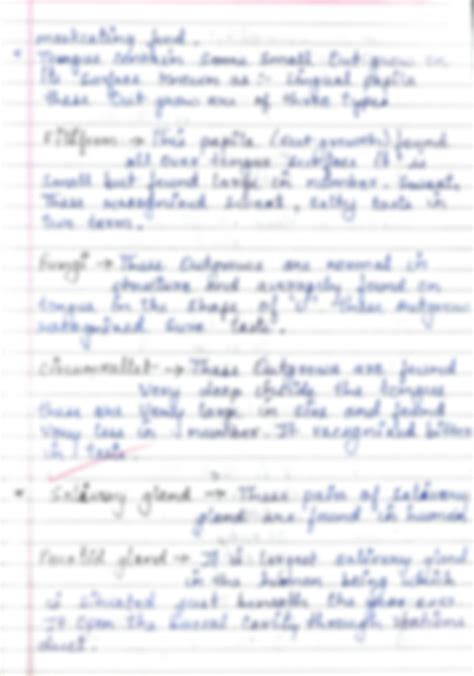 masticating food.
* Tongue contain some small out grow on
its surface known as :- Lingual papila
these out grow are of three types
Filiform → This papila (outgrowth) found
all over tongue surface it is
small but found large in number.
These recognised sweet, salty taste in
Fungi → These Outgrows are normal in
structure and found on
tongue in the shape of 'U'. These outgrow
recognised taste.
Circumvallet → These Outgrows are found
Very deep inside the tongue
these are very large in size and found
very less in number. It recognised bitter
in taste.
* Salivary gland → Three pair of salivary
gland are found in human
Parotid gland → It is largest salivary gland
in the human being which
is situated just beneath the
It open the buccal cavity through
duct.